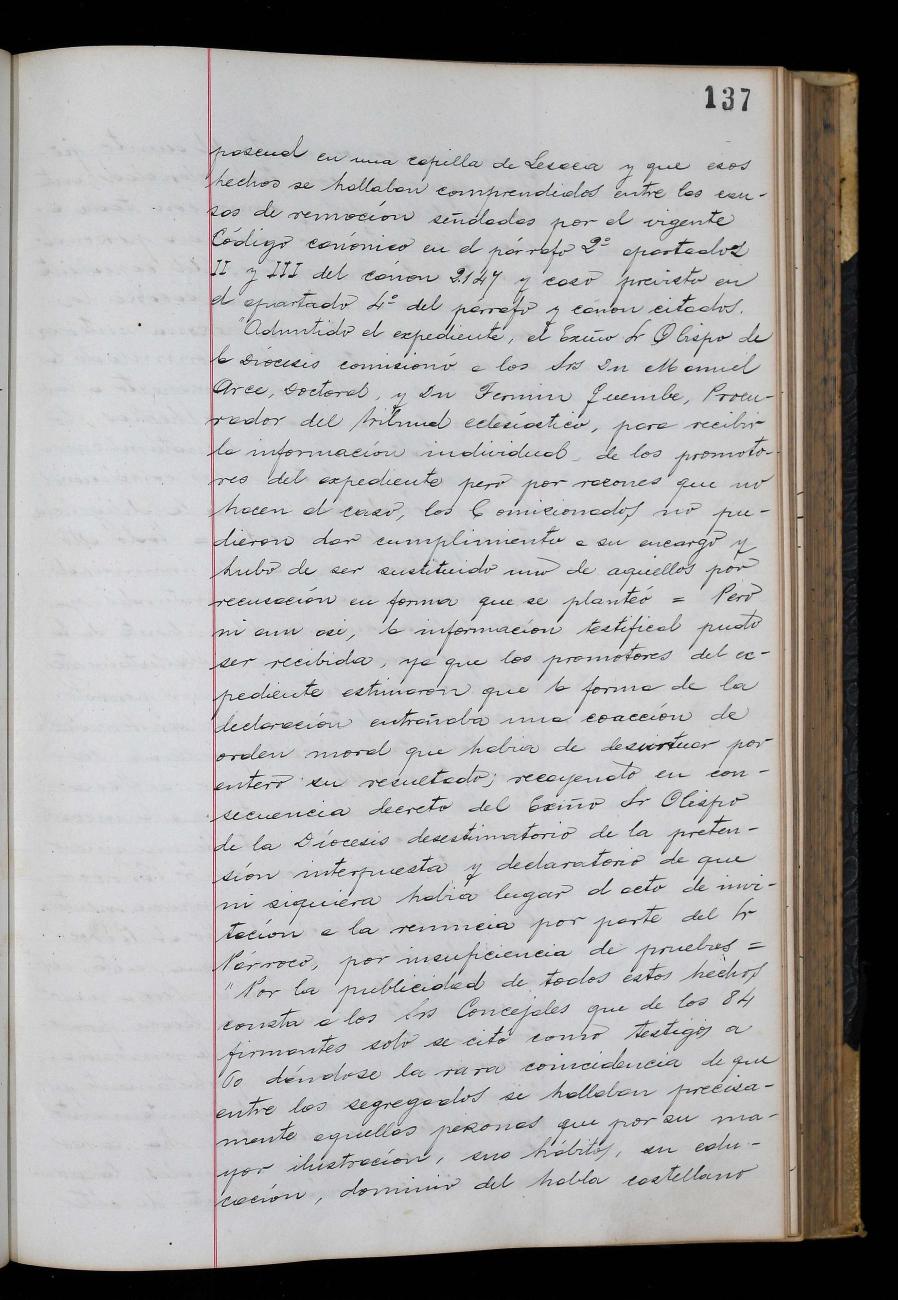 137
pascual en una capilla de Lesaca y que esos
hechos se hallaban comprendidos entre las cau-
sas de remoción señaladas por el vigente
Código canónico en el párrafo 2º apartados
II y III del cánon 2.147 y caso previsto en
el apartado 4º del párrafo y cánon citados.
"Admitido el expediente, el Exmo Sr Obispo de
la Diócesis comisionó a los Srs Dn Manuel
Arce, Doctoral, y Dn Fermin Guembe, Procu-
rador del Tribunal eclesiástico, para recibir
la información individual de los promoto-
res del expediente pero por razones que no
hacen al caso, los Comisionados no pu-
dieron dar cumplimiento a su encargo y
hubo de ser sustituido uno de aquellos por
recusación en forma que se planteó = Pero
ni aun asi, la información testifical pudo
ser recibida, ya que los promotores del ex-
pediente estimaron que la forma de la
declaración entrañaba una coacción de
orden moral que habia de desvirtuar por
entero su resultado; recayendo en con-
secuencia decreto del Exmo Sr Obispo
de la Diócesis desestimatorio de la preten-
sión interpuesta y declaratorio de que
ni siquiera había lugar al acto de invi-
tación a la renuncia por parte del Sr
Párroco, por insuficiencia de pruebas =
"Por la publicidad de todos estos hechos
consta a los Srs Concejales que de los 84
firmantes solo se citó como testigos a
60 dándose la rara coincidencia de que
entre los segregados se hallaban precisa-
mente aquellas personas que por su ma-
yor ilustración, sus hábitos, su edu-
cación, dominio del habla castellano